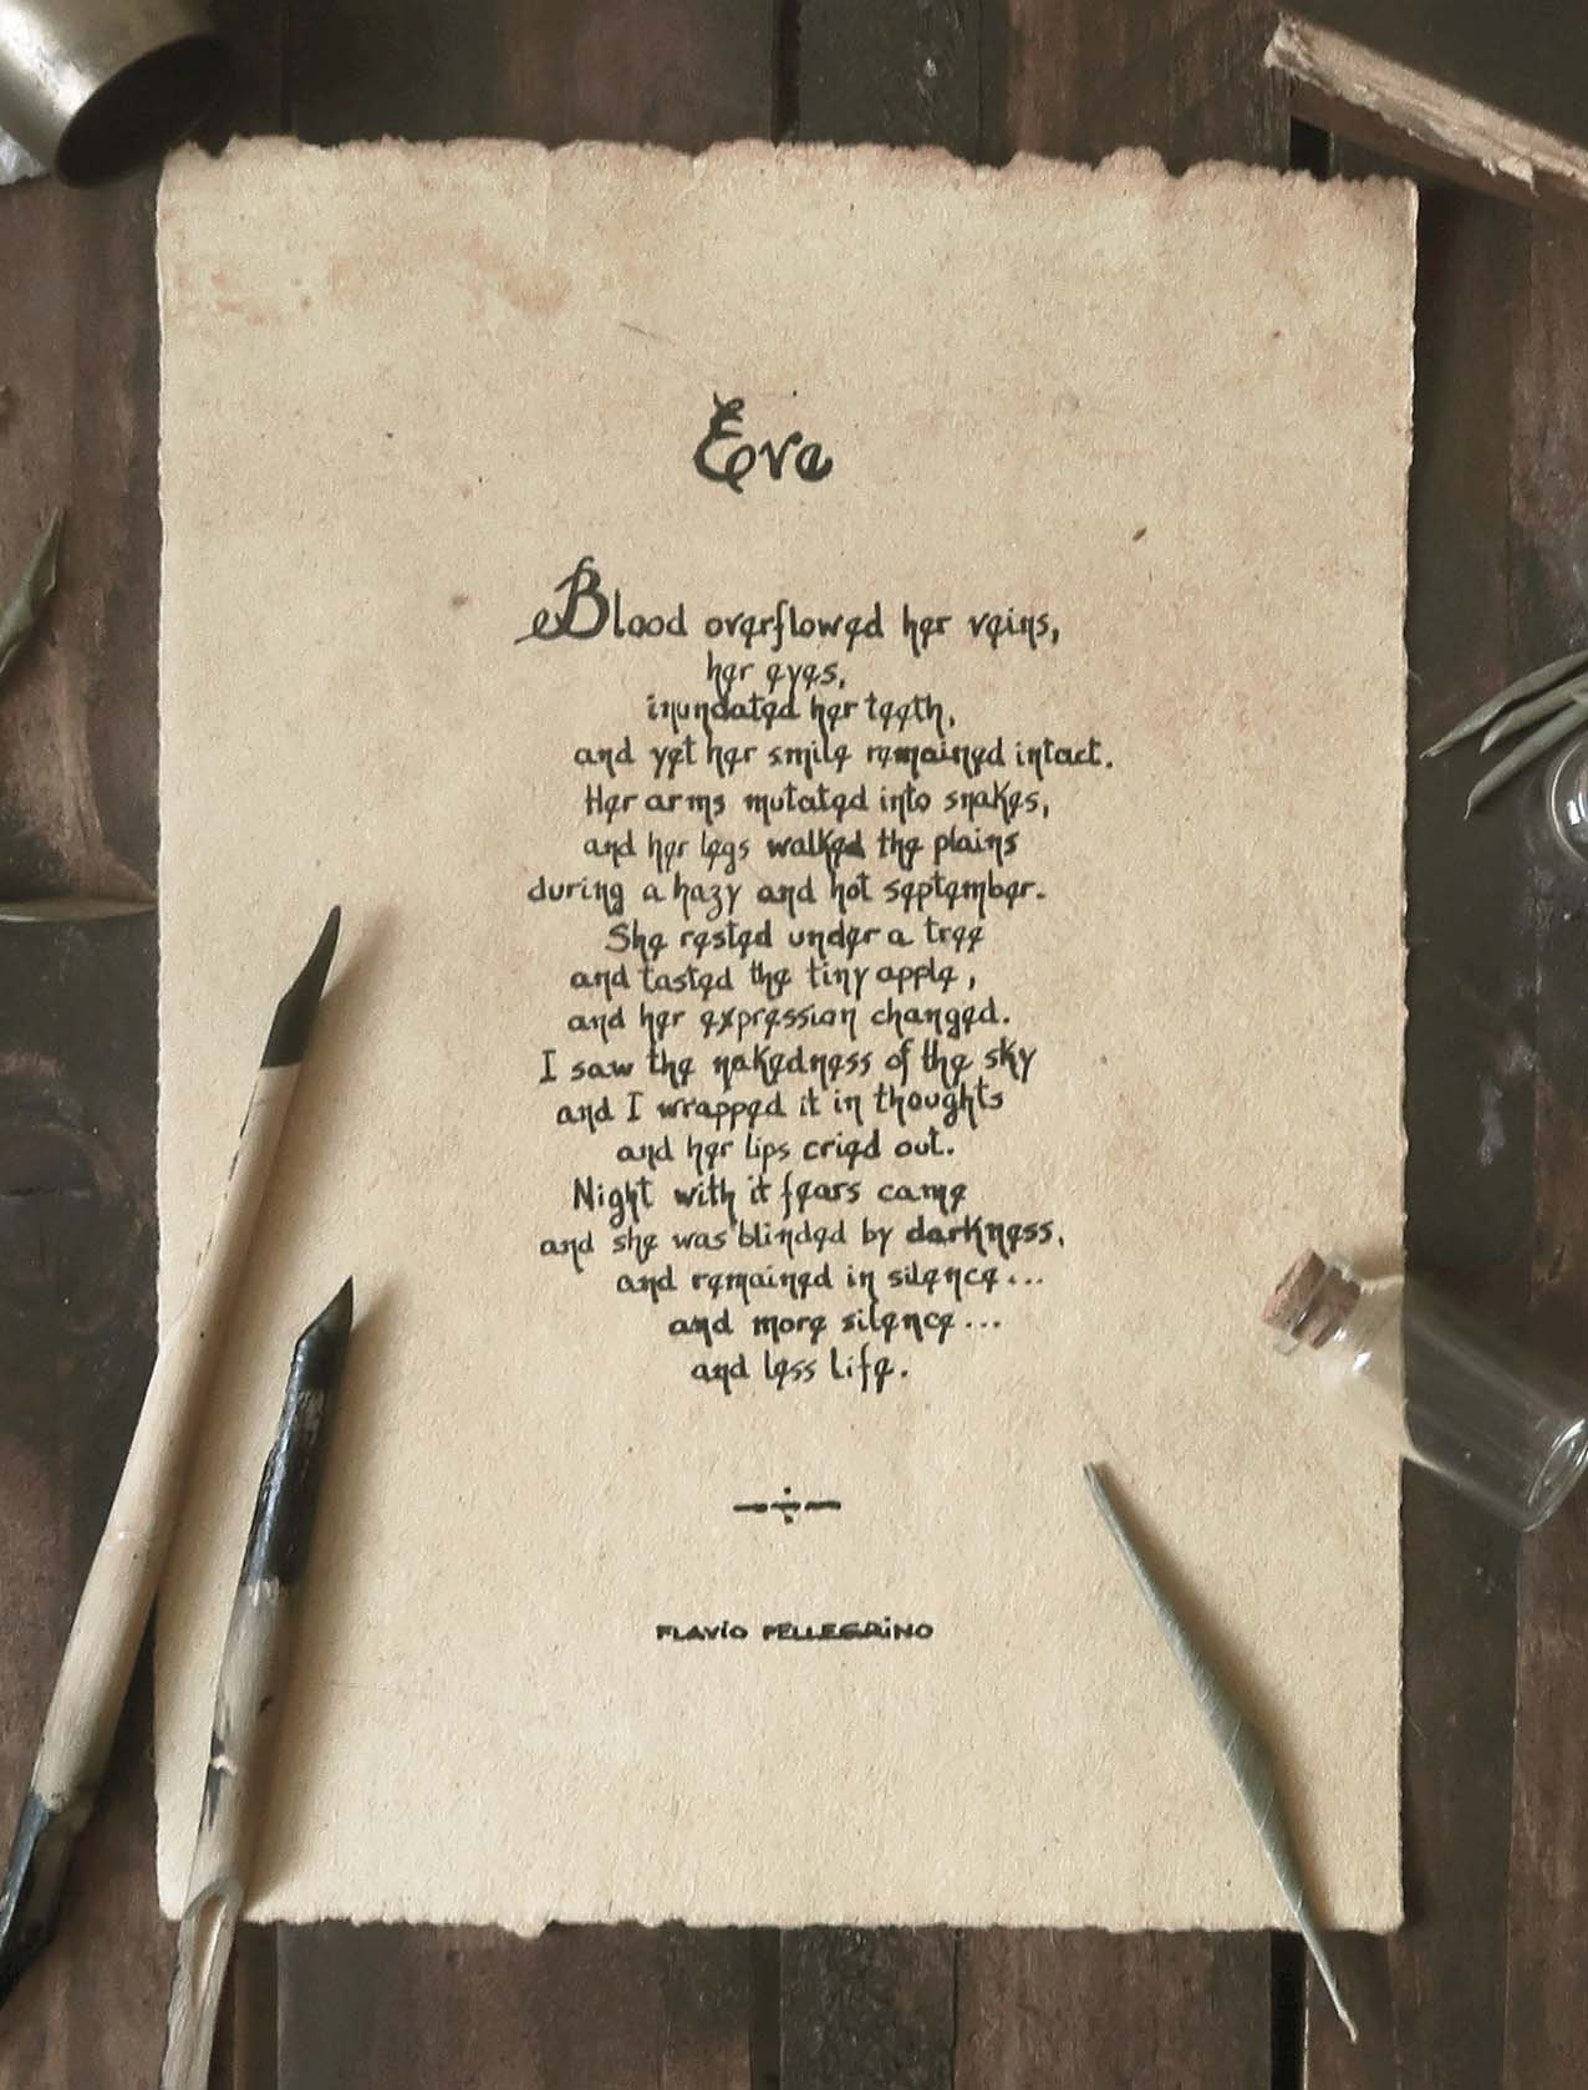 Eve
Blood overflowed her veins,
her eyes,
inundated her teeth,
and yet her smile remained intact.
Her arms mutated into snakes,
and her legs walked the plains
during a hazy and hot september.
She rested under a tree
and tasted the tiny apple,
and her expression changed.
I saw the nakedness of the sky
and I wrapped it in thoughts
and her lips cried out.
Night with it fears came
and she was blinded by darkness,
and remained in silence...
and more silence...
and less life.
FLAViO PELLEGRiNO